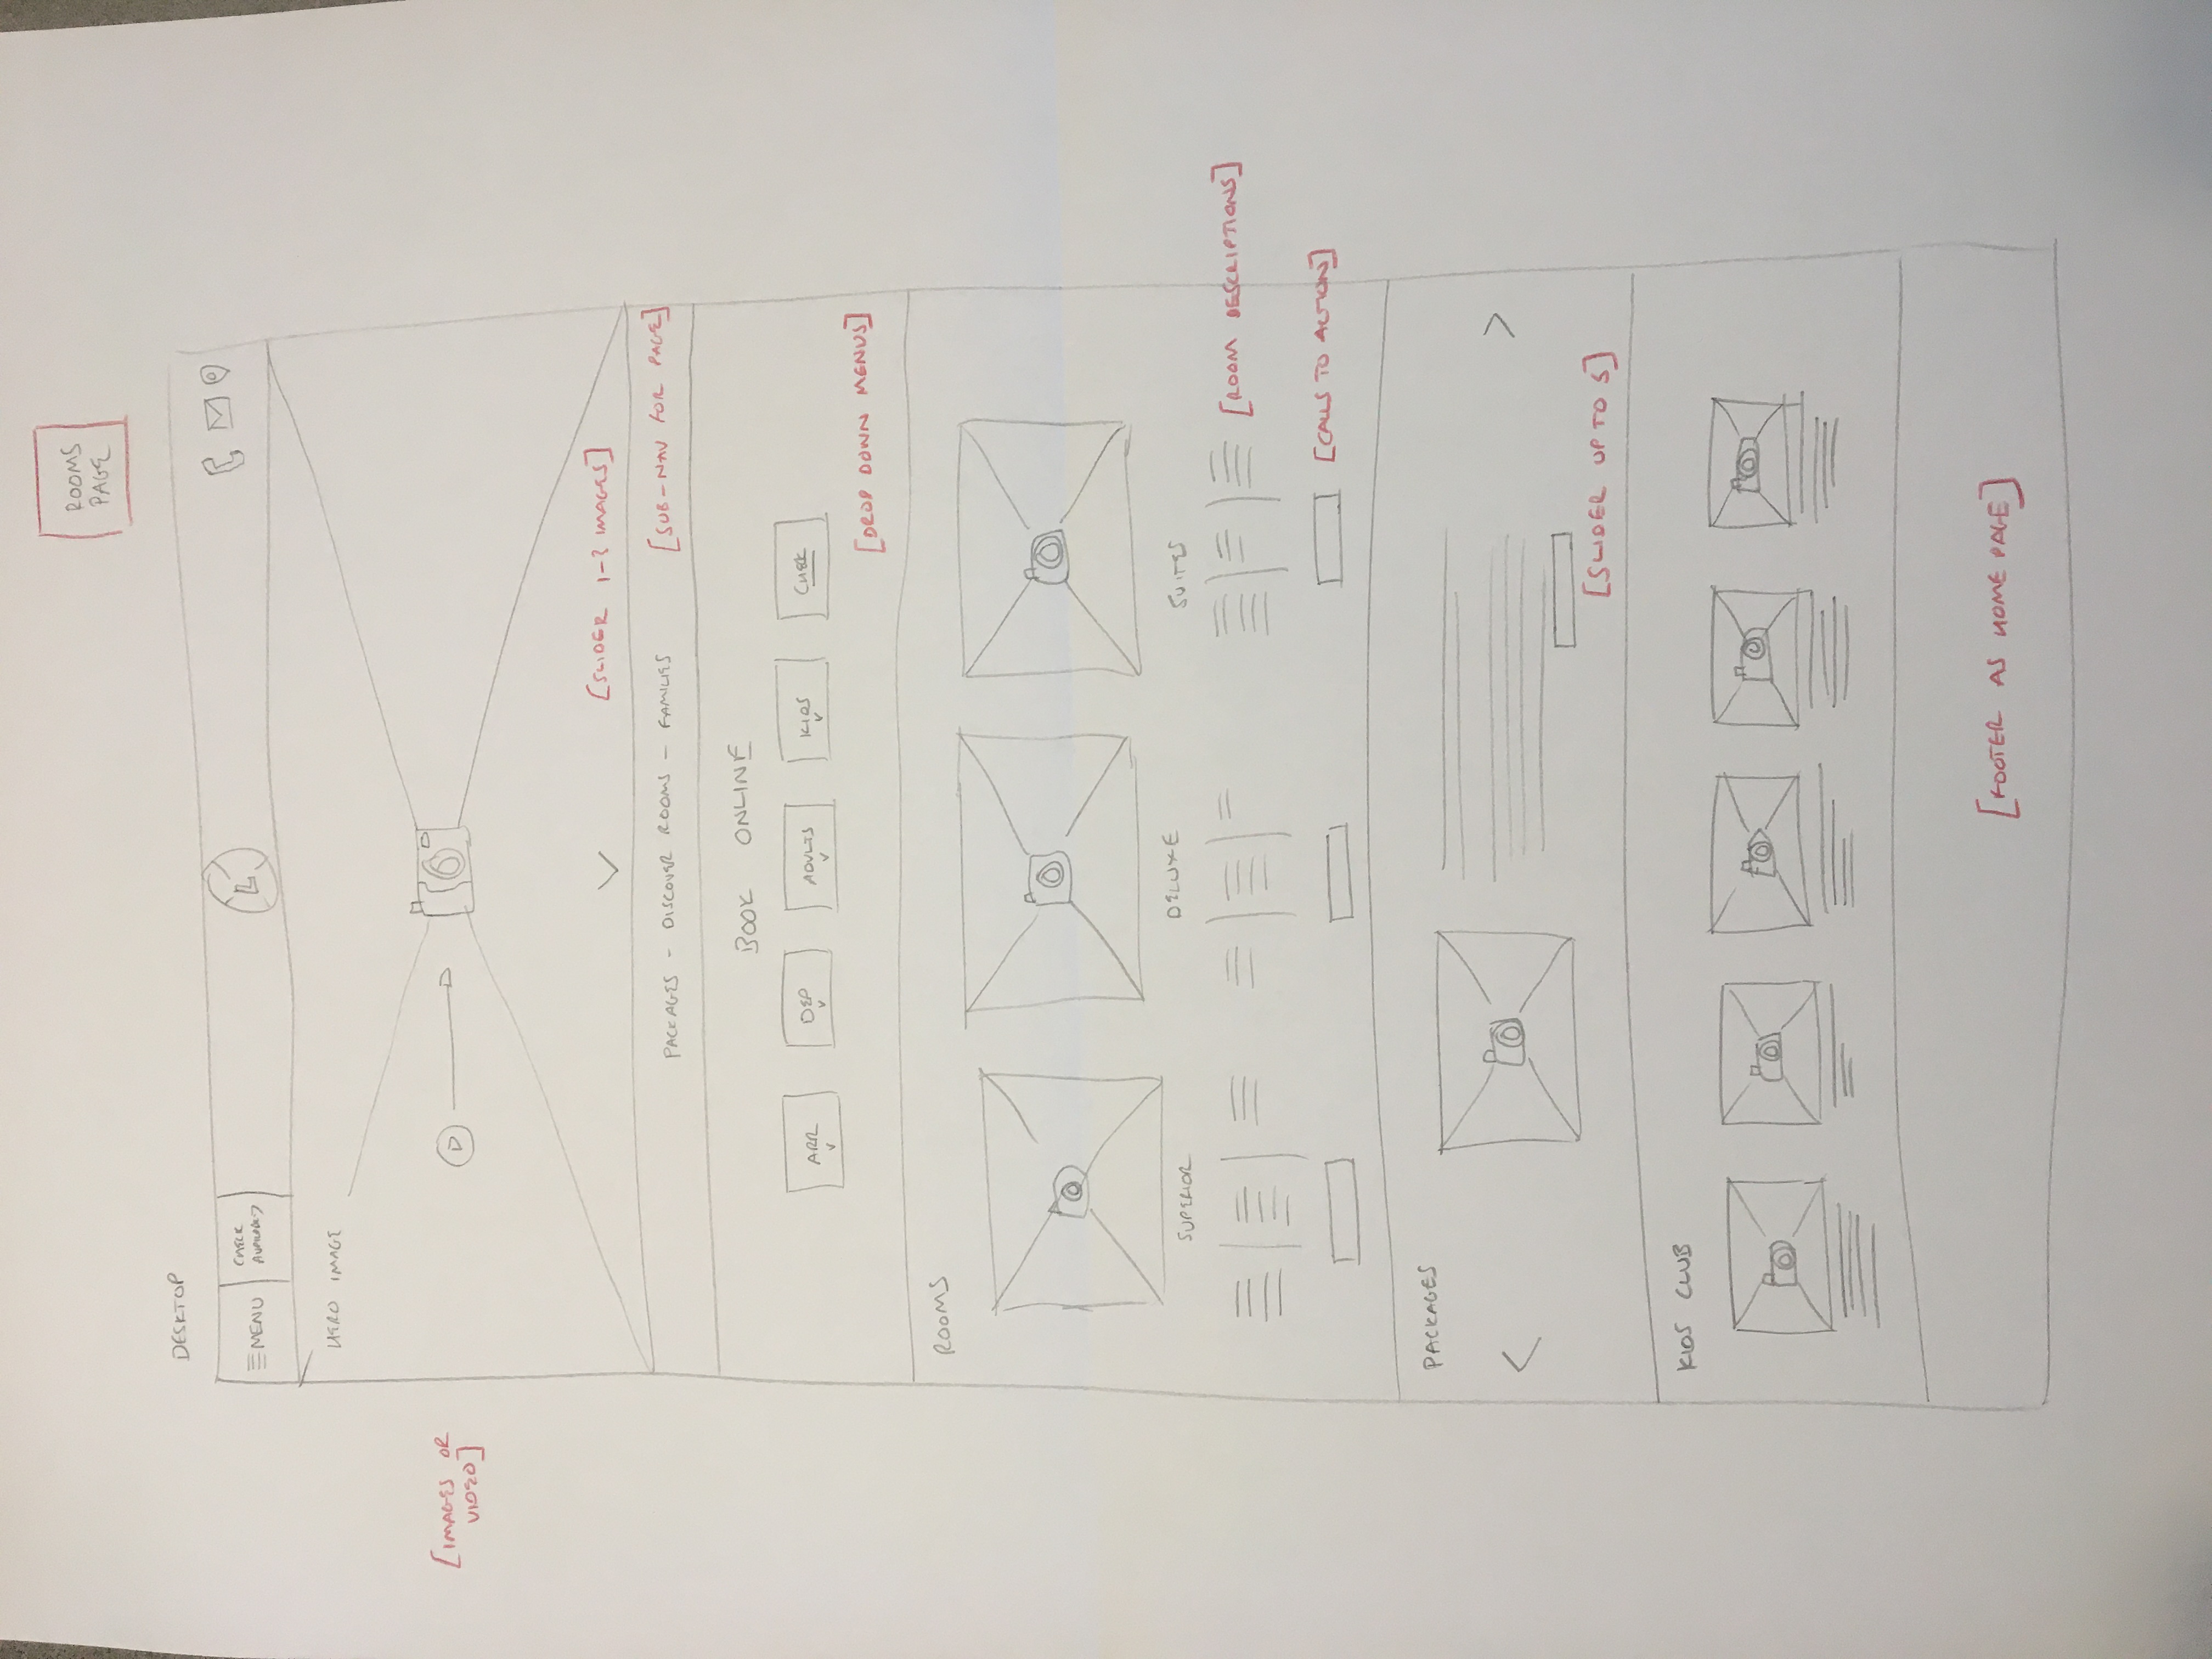 ROOMS
PAGE
DESKTOP
MENU
CHECK
L
HERO IMAGE
[IMAGES OR
VIDEO]
[SLIDER 1-3 IMAGES]
PACKAGES - DISCOVER ROOMS - FAMILIES
[SUB-NAV FOR PAGE]
BOOK ONLINE
ARR
DEP
ADULTS
KIDS
[DROP DOWN MENUS]
ROOMS
SUPERIOR
DELUXE
SUITES
[ROOM DESCRIPTIONS]
[CALLS TO ACTION]
PACKAGES
[SLIDER UP TO 5]
KIDS CLUB
[FOOTER AS HOME PAGE]